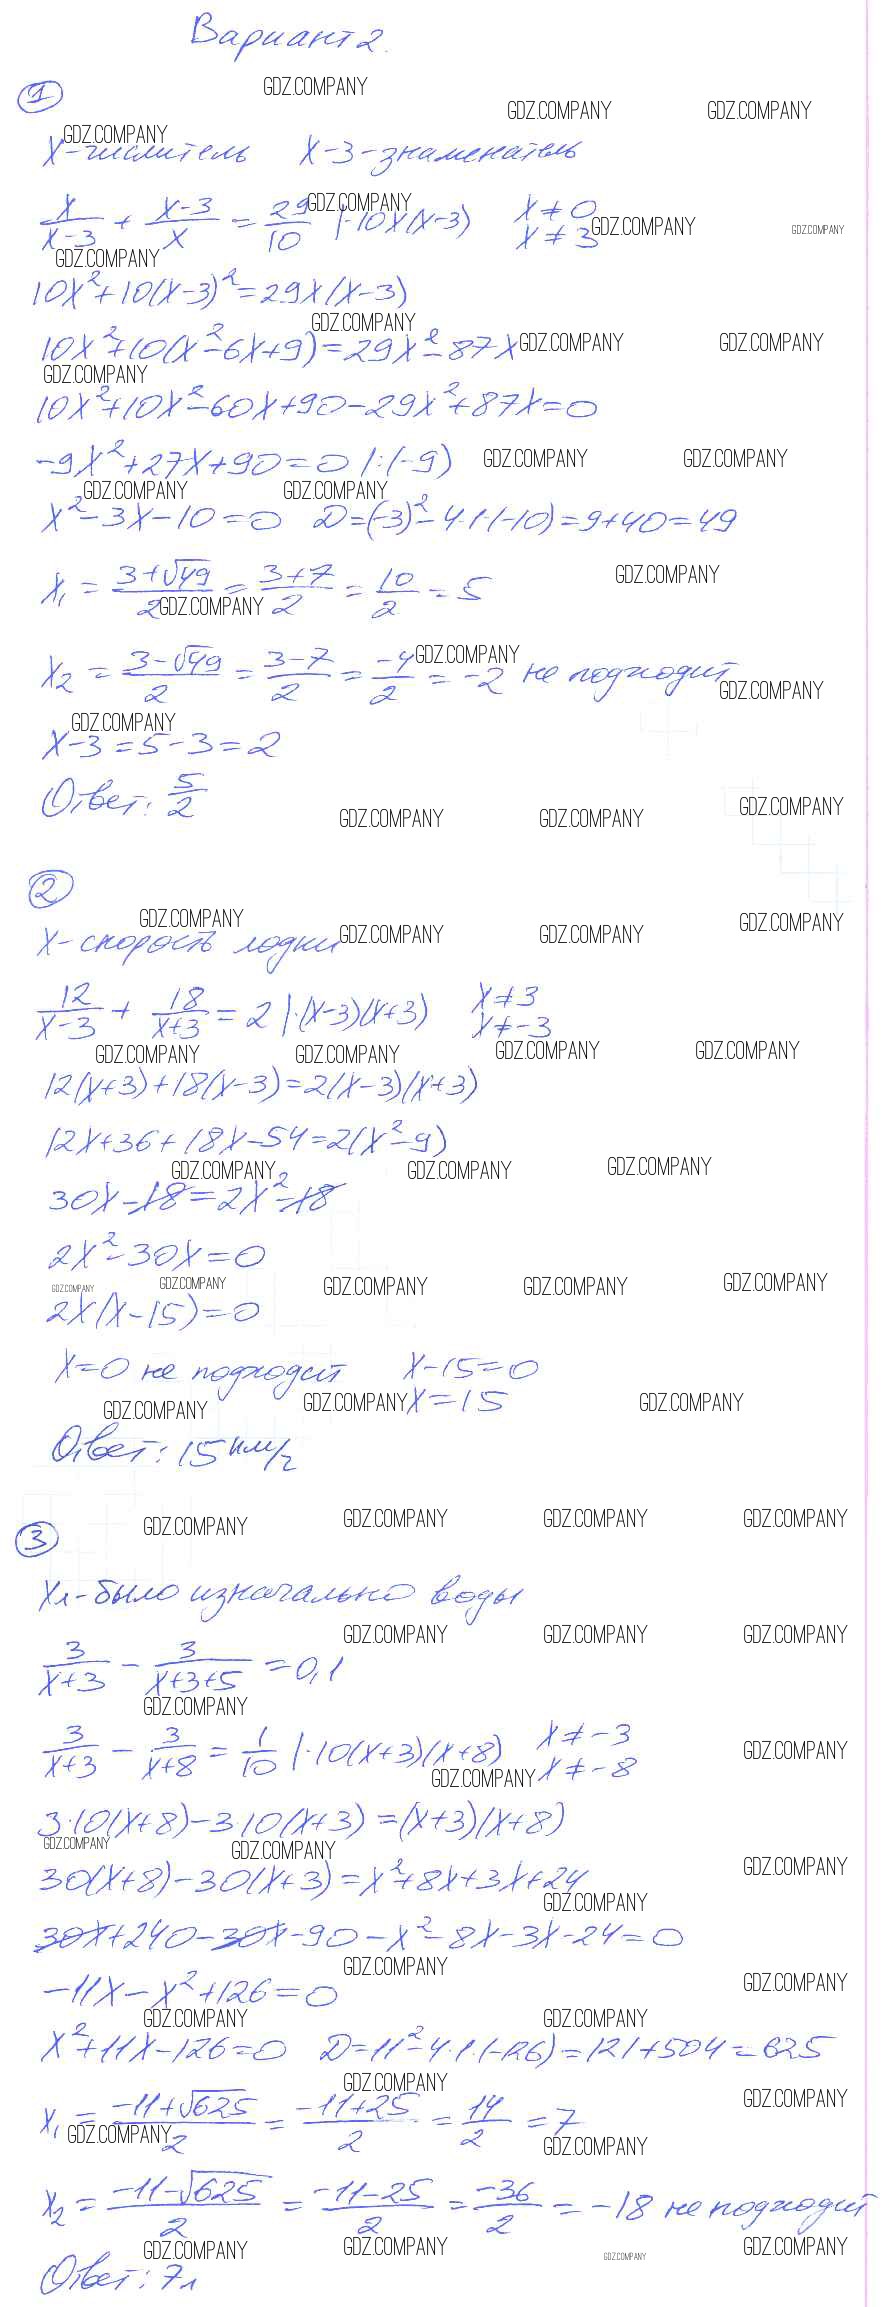 Вариант 2.
GDZ.COMPANY
1
GDZ.COMPANY GDZ.COMPANY
GDZ.COMPANY
X-числитель X-3-знаменатель
x/(x-3) + (x-3)/x = 29/10 |·10x(x-3) x≠0
x≠3
GDZ.COMPANY GDZ.COMPANY GDZ.COMPANY
GDZ.COMPANY
10x²+10(x-3)²=29x(x-3)
GDZ.COMPANY
10x²+10(x²-6x+9)=29x²-87x
GDZ.COMPANY GDZ.COMPANY
GDZ.COMPANY
10x²+10x²-60x+90-29x²+87x=0
-9x²+27x+90=0 |:(-9)
GDZ.COMPANY GDZ.COMPANY
GDZ.COMPANY GDZ.COMPANY
x²-3x-10=0 D=(-3)²-4·1·(-10)=9+40=49
x₁ = (3+√49)/2 = (3+7)/2 = 10/2 = 5
GDZ.COMPANY
GDZ.COMPANY
x₂ = (3-√49)/2 = (3-7)/2 = -4/2 = -2 не подходит
GDZ.COMPANY
GDZ.COMPANY
GDZ.COMPANY
x-3=5-3=2
Ответ: 5/2
GDZ.COMPANY GDZ.COMPANY GDZ.COMPANY
2
GDZ.COMPANY
X-скорость лодки
GDZ.COMPANY GDZ.COMPANY GDZ.COMPANY
12/(x-3) + 18/(x+3) = 2 |·(x-3)(x+3) x≠3
x≠-3
GDZ.COMPANY GDZ.COMPANY GDZ.COMPANY GDZ.COMPANY
12(x+3)+18(x-3)=2(x-3)(x+3)
12x+36+18x-54=2(x²-9)
GDZ.COMPANY GDZ.COMPANY GDZ.COMPANY
30x-18=2x²-18
2x²-30x=0
GDZ.COMPANY GDZ.COMPANY GDZ.COMPANY GDZ.COMPANY GDZ.COMPANY
2x(x-15)=0
x=0 не подходит x-15=0
x=15
GDZ.COMPANY GDZ.COMPANY GDZ.COMPANY
Ответ: 15 км/ч
3
GDZ.COMPANY GDZ.COMPANY GDZ.COMPANY GDZ.COMPANY
Xл-было изначально воды
GDZ.COMPANY GDZ.COMPANY GDZ.COMPANY
3/(x+3) - 3/(x+3+5) = 0,1
GDZ.COMPANY
3/(x+3) - 3/(x+8) = 1/10 |·10(x+3)(x+8) x≠-3
x≠-8
GDZ.COMPANY GDZ.COMPANY
3·10(x+8)-3·10(x+3)=(x+3)(x+8)
GDZ.COMPANY GDZ.COMPANY GDZ.COMPANY
30(x+8)-30(x+3)=x²+8x+3x+24
GDZ.COMPANY
30x+240-30x-90-x²-8x-3x-24=0
GDZ.COMPANY GDZ.COMPANY
-11x-x²+126=0
GDZ.COMPANY GDZ.COMPANY
x²+11x-126=0 D=11²-4·1·(-126)=121+504=625
GDZ.COMPANY GDZ.COMPANY
x₁ = (-11+√625)/2 = (-11+25)/2 = 14/2 = 7
GDZ.COMPANY GDZ.COMPANY
x₂ = (-11-√625)/2 = (-11-25)/2 = -36/2 = -18 не подходит
GDZ.COMPANY GDZ.COMPANY GDZ.COMPANY GDZ.COMPANY
Ответ: 7л